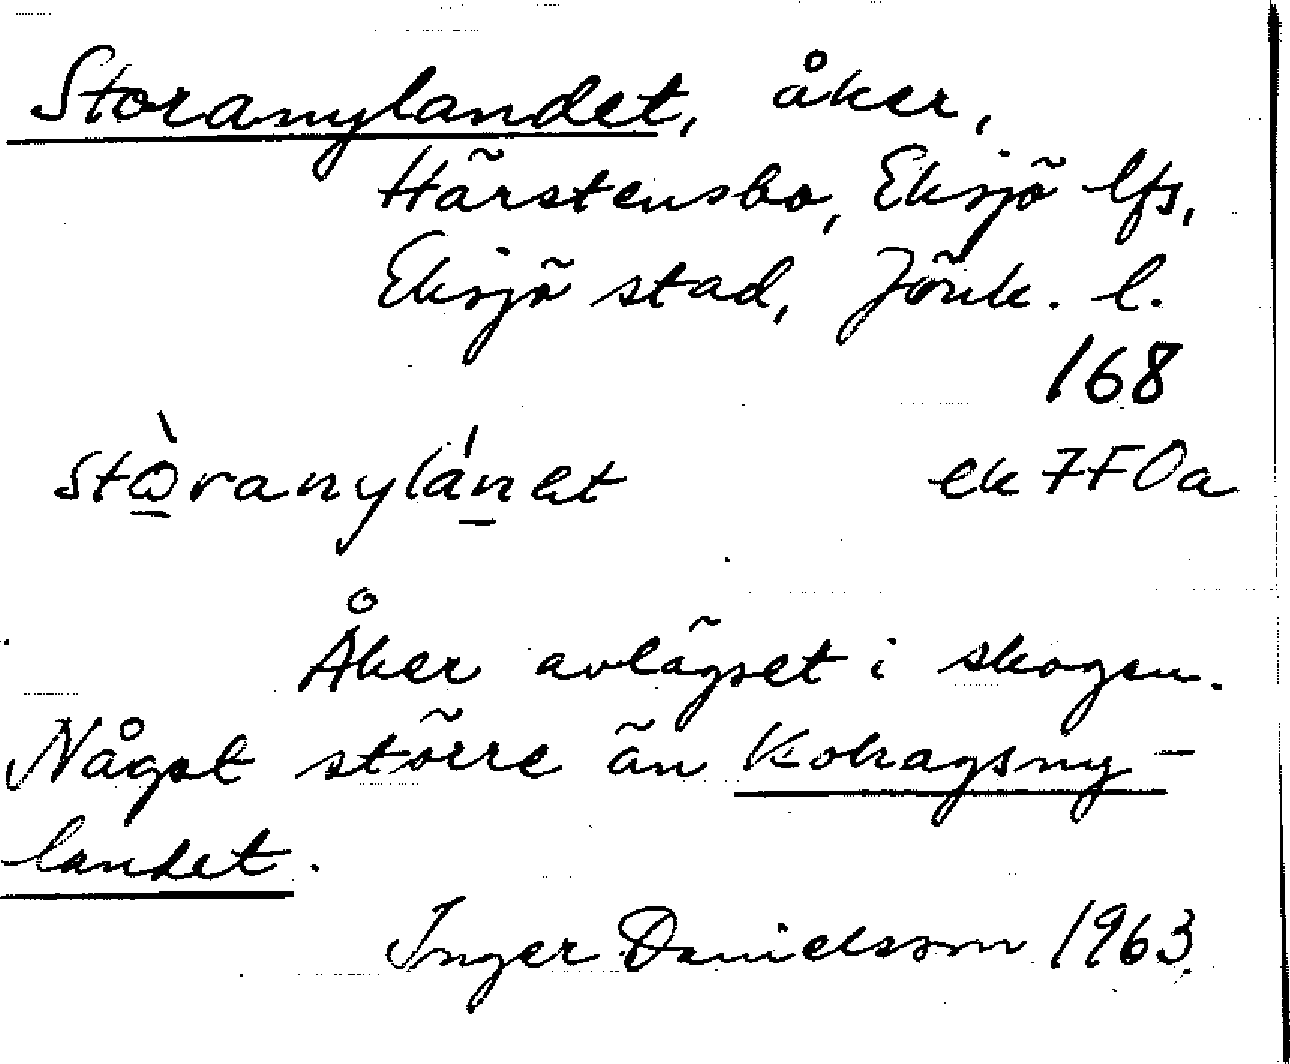 Storanylandet, åker,
Härstensbo, Eksjö lfs,
Eksjö stad, Jönk. l.
168
stòranylánet ek 7F0a
Åker avlägset i skogen.
Något större än Kohagsny-
landet.
Inger Danielsson 1963